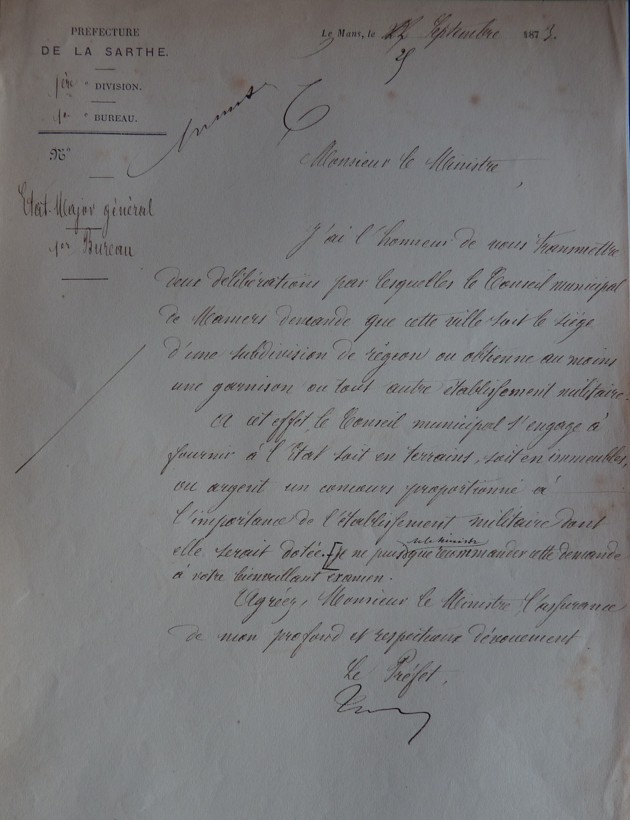 PRÉFECTURE
DE LA SARTHE.
1ère DIVISION.
1er BUREAU.
N°
Etat-Major général
1er Bureau
Le Mans, le 22 Septembre 1873.
25
Monsieur le Ministre,
J'ai l'honneur de vous transmettre
deux délibérations par lesquelles le Conseil municipal
de Mamers demande que cette ville soit le siège
d'une subdivision de région ou obtienne au moins
une garnison ou tout autre établissement militaire.
A cet effet, le Conseil municipal s'engage à
fournir à l'Etat soit en terrains, soit en immeubles,
ou argent un concours proportionné à
l'importance de l'établissement militaire dont
elle serait dotée. [Je ne puis, M. le Ministre, que recommander cette demande
à votre bienveillant examen.
Agréez, Monsieur le Ministre l'assurance
de mon profond et respectueux dévouement
Le Préfet,